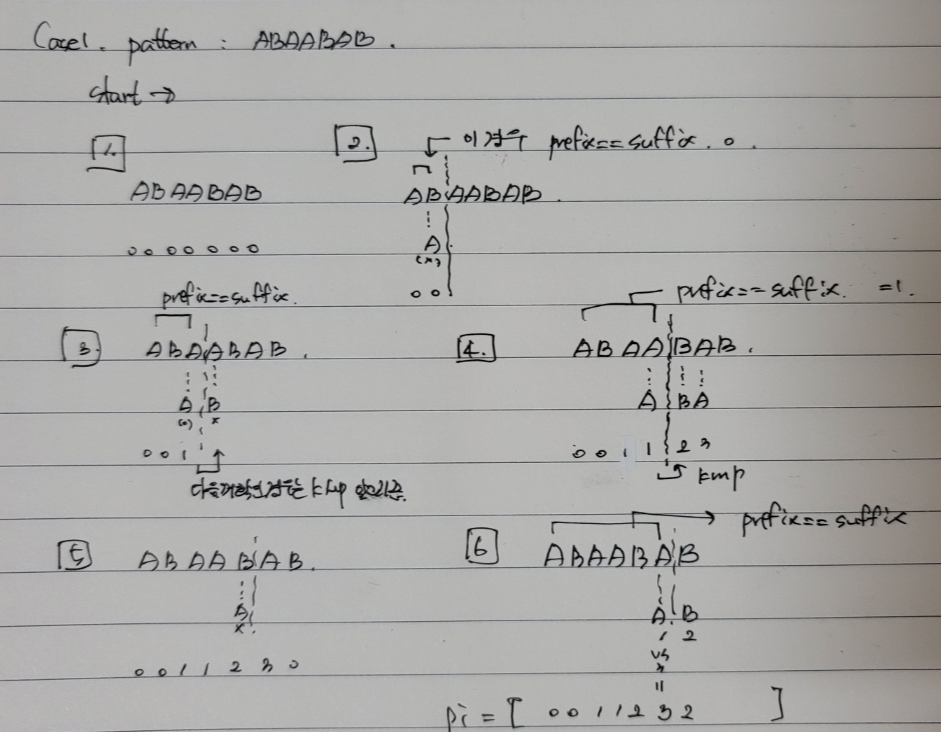 Case1. pattern : ABAABAB.
start →
1.
ABAABAB
0000000
2.
이 경우 prefix==suffix. 0.
ABAABAB.
A
(x)
00
3.
prefix==suffix.
ABAABAB.
A B
(o) x
001
kmp
4.
prefix==suffix. =1.
ABAABAB.
A BA
0011 23
kmp
5
ABAABAB.
A
x.
0011230
6
prefix==suffix
ABAABAB
A B
1 2
vs
3
=
pi = [ 0011232 ]